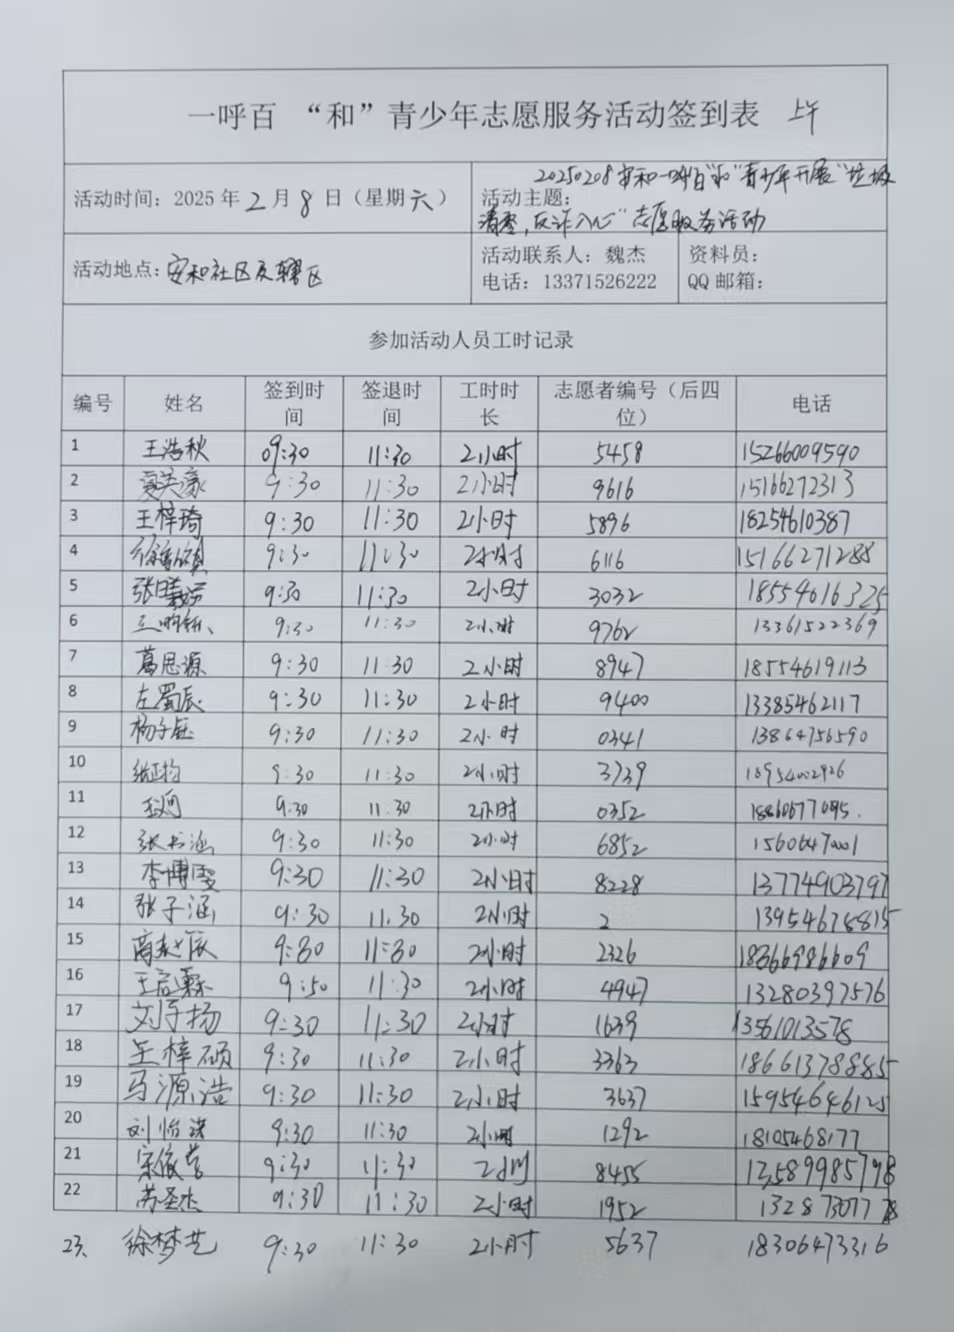 一呼百 “和” 青少年志愿服务活动签到表 上午
活动时间：2025年2月8日（星期六）
活动主题：20250208安和一呼百“和”青少年开展“垃圾
清零，反诈入心”志愿服务活动
活动地点：安和社区及辖区
活动联系人：魏杰
电话：13371526222
资料员：
QQ邮箱：
参加活动人员工时记录
编号 姓名 签到时间 签退时间 工时时长 志愿者编号（后四位） 电话
1 王浩秋 09:30 11:30 2小时 5458 15266009590
2 9:30 11:30 2小时 9616 15166272313
3 王梓琦 9:30 11:30 2小时 5896 18254610387
4 9:30 11:30 2小时 6116 15166271288
5 9:30 11:30 2小时 3032 18554616325
6 9:30 11:30 2小时 9762 13361522369
7 葛思源 9:30 11:30 2小时 8947 18554619113
8 左蜀辰 9:30 11:30 2小时 9400 13385462117
9 杨子钰 9:30 11:30 2小时 0341 13864756590
10 9:30 11:30 2小时 3739 18954002926
11 9:30 11:30 2小时 0352
12 张书涵 9:30 11:30 2小时 6852 15606470001
13 李博雯 9:30 11:30 2小时 8228 13774903797
14 张子涵 9:30 11:30 2小时 2 13954678815
15 9:30 11:30 2小时 2326 18366986609
16 9:50 11:30 2小时 4947 13280397576
17 刘子扬 9:30 11:30 2小时 1639 13561013578
18 王梓硕 9:30 11:30 2小时 3363 18661378885
19 马源浩 9:30 11:30 2小时 3637 15954646125
20 9:30 11:30 2小时 1292 18105468177
21 9:30 11:30 8455 13589985798
22 苏圣杰 9:30 11:30 2小时 1952 13287307778
23、 徐梦艺 9:30 11:30 2小时 5637 18306473316